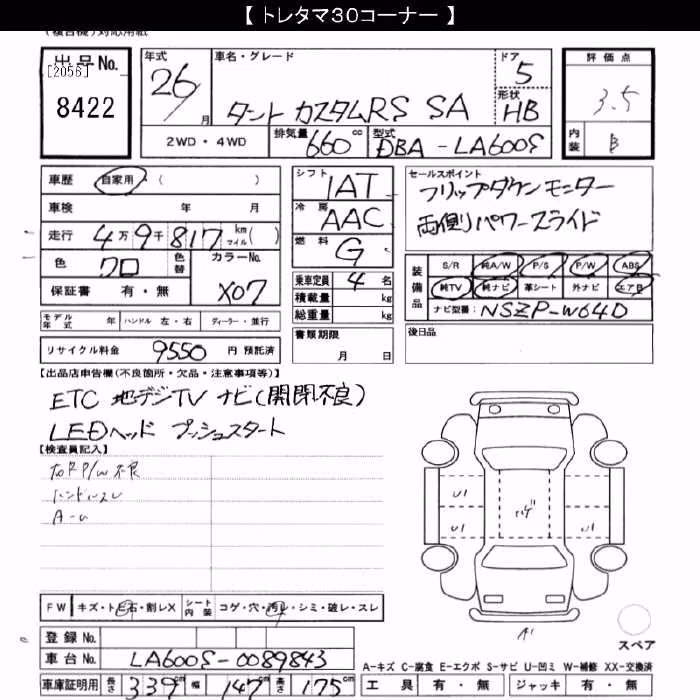 【 トレタマ30コーナー 】
出品No.
[2056]
8422
年式
26
月
車名・グレード
タント カスタムRS SA
ドア
5
形状
HB
評価点
3.5
内装
B
2WD・4WD
排気量
660 cc
型式
DBA-LA600S
車歴
自家用・( )
車検 年 月
走行 4万9千817 km マイル( )
色 クロ 色替
カラーNo.
X07
保証書 有・無
シフト
IAT
冷房
AAC
燃料
G
乗車定員 4名
積載量 kg
総重量 kg
書類期限
月 日
セールスポイント
フリップダウンモニター
両側パワースライド
装備品
S/R 純A/W P/S P/W ABS
純TV 純ナビ 革シート 外ナビ エアB
ナビ型番: NSZP-W64D
後日品
モデル年式 年 ハンドル 左・右 ディーラー・並行
リサイクル料金 9550 円 預託済
【出品店申告欄(不良箇所・欠品・注意事項等)】
ETC 地デジTV ナビ(開閉不良)
LEDヘッド プッシュスタート
【検査員記入】
右R P/W 不良
ハンドルスレ
ハゲ
FW キズ・トビ石・割レX シート内装 コゲ・穴・汚レ・シミ・破レ・スレ
登録No.
車台No. LA600S-0089843
車庫証明用 長さ 339 cm 幅 147 cm 高さ 175 cm
スペア
A-キズ C-腐食 E-エクボ S-サビ U-凹ミ W-補修 XX-交換済
工具 有・無 ジャッキ 有・無